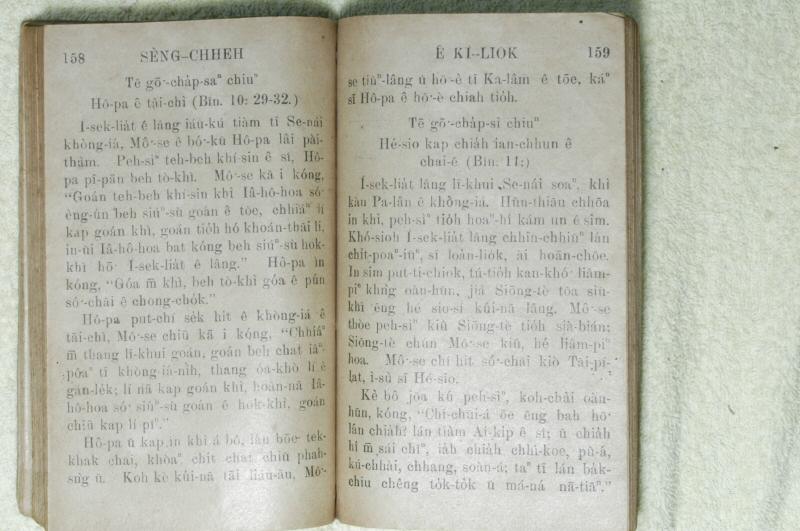 158 SÈNG-CHHEH
Tē gō͘-cha̍p-saⁿ chiuⁿ
Hô-pa ê tāi-chì (Bîn. 10: 29-32.)
Í-sek-lia̍t ê lâng iáu-kú tiàm tī Se-nái
khòng-iá, Mô͘-se ê bó͘-kū Hô-pa lâi pài-
thàm. Peh-sìⁿ teh-beh khí-sin ê sî, Hô-
pa pī-pān beh tò-khì. Mô͘-se kā i kóng,
“Goán teh-beh khí-sin khì Iâ-hô-hoa só͘
èng-ún beh siúⁿ-sù goán ê tōe, chhiáⁿ lí
kap goán khì, goán tio̍h hó khoán-thāi lí,
in-ūi Iâ-hô-hoa bat kóng beh siúⁿ-sù hok-
khì hō͘ Í-sek-lia̍t ê lâng.” Hô-pa ìn
kóng, “Góa m̄ khì, beh tò-khì góa ê pún
só͘-chāi ê chong-cho̍k.”
Hô-pa put-chí se̍k hit ê khòng-iá ê
tāi-chì, Mô͘-se chiū kā i kóng, “Chhiáⁿ
m̄ thang lī-khui goán, goán beh chat iâⁿ-
pôaⁿ tī khòng-iá-nih, thang óa-khò lí ê
gán-le̍k; lí nā kap goán khì, hoàn-nā Iâ-
hô-hoa só͘ siúⁿ-sù goán ê hok-khì, goán
chiū kap lí pîⁿ.”
Hô-pa ū kap in khì á bô, iáu bōe tek-
khak chai, khòaⁿ chit chat chiū phah-
sǹg ū. Koh kè kúi-nā tāi liáu-āu, Mô͘-
Ê KÌ-LIOK 159
se tiūⁿ-lâng ū hō͘-è tī Ka-lâm ê tōe, káⁿ
sī Hô-pa ê hō͘-è chiah tio̍h.
Tē gō͘-cha̍p-sì chiuⁿ
Hé-sio kap chia̍h ian-chhun ê
chai-ē (Bîn. 11:)
Í-sek-lia̍t lâng lī-khui Se-nái soaⁿ, khì
kàu Pa-lân ê khòng-iá. Hûn-thiāu chhōa
in khì, peh-sìⁿ tio̍h hoaⁿ-hí kám un ê sim.
Khó-sioh Í-sek-lia̍t lâng chhin-chhiūⁿ lán
chit-poaⁿ-iūⁿ, sī loān-lio̍k, ài hoān-chōe.
In sim put-ti-chiok, tú-tio̍h kan-khó͘ liám-
piⁿ khng oàn-hūn, jiá Siōng-tè tōa siū-
khì ēng hé sio-sí kúi-nā lâng. Mô͘-se
thòe peh-sìⁿ kiû Siōng-tè tio̍h sià-bián;
Siōng-tè chún Mô͘-se kiû, hé liâm-piⁿ
hoa. Mô͘-se chí hit só͘-chāi kiò Tāi-pí-
la̍t, ì-sù sī Hé-sio.
Kè bô jōa kú peh-sìⁿ, koh-chài oàn-
hūn, kóng, “Chí-chūi-á ōe ēng bah hō͘
lán chia̍h? lán tiàm Ai-ki̍p ê sî; ū chia̍h
hî m̄ sái chîⁿ, ia̍h chia̍h chhì-koe, pù-â,
kú-chhài, chhang, soàn-á; taⁿ tī lán ba̍k-
chiu chêng to̍k-to̍k ū má-ná nā-tiāⁿ.”